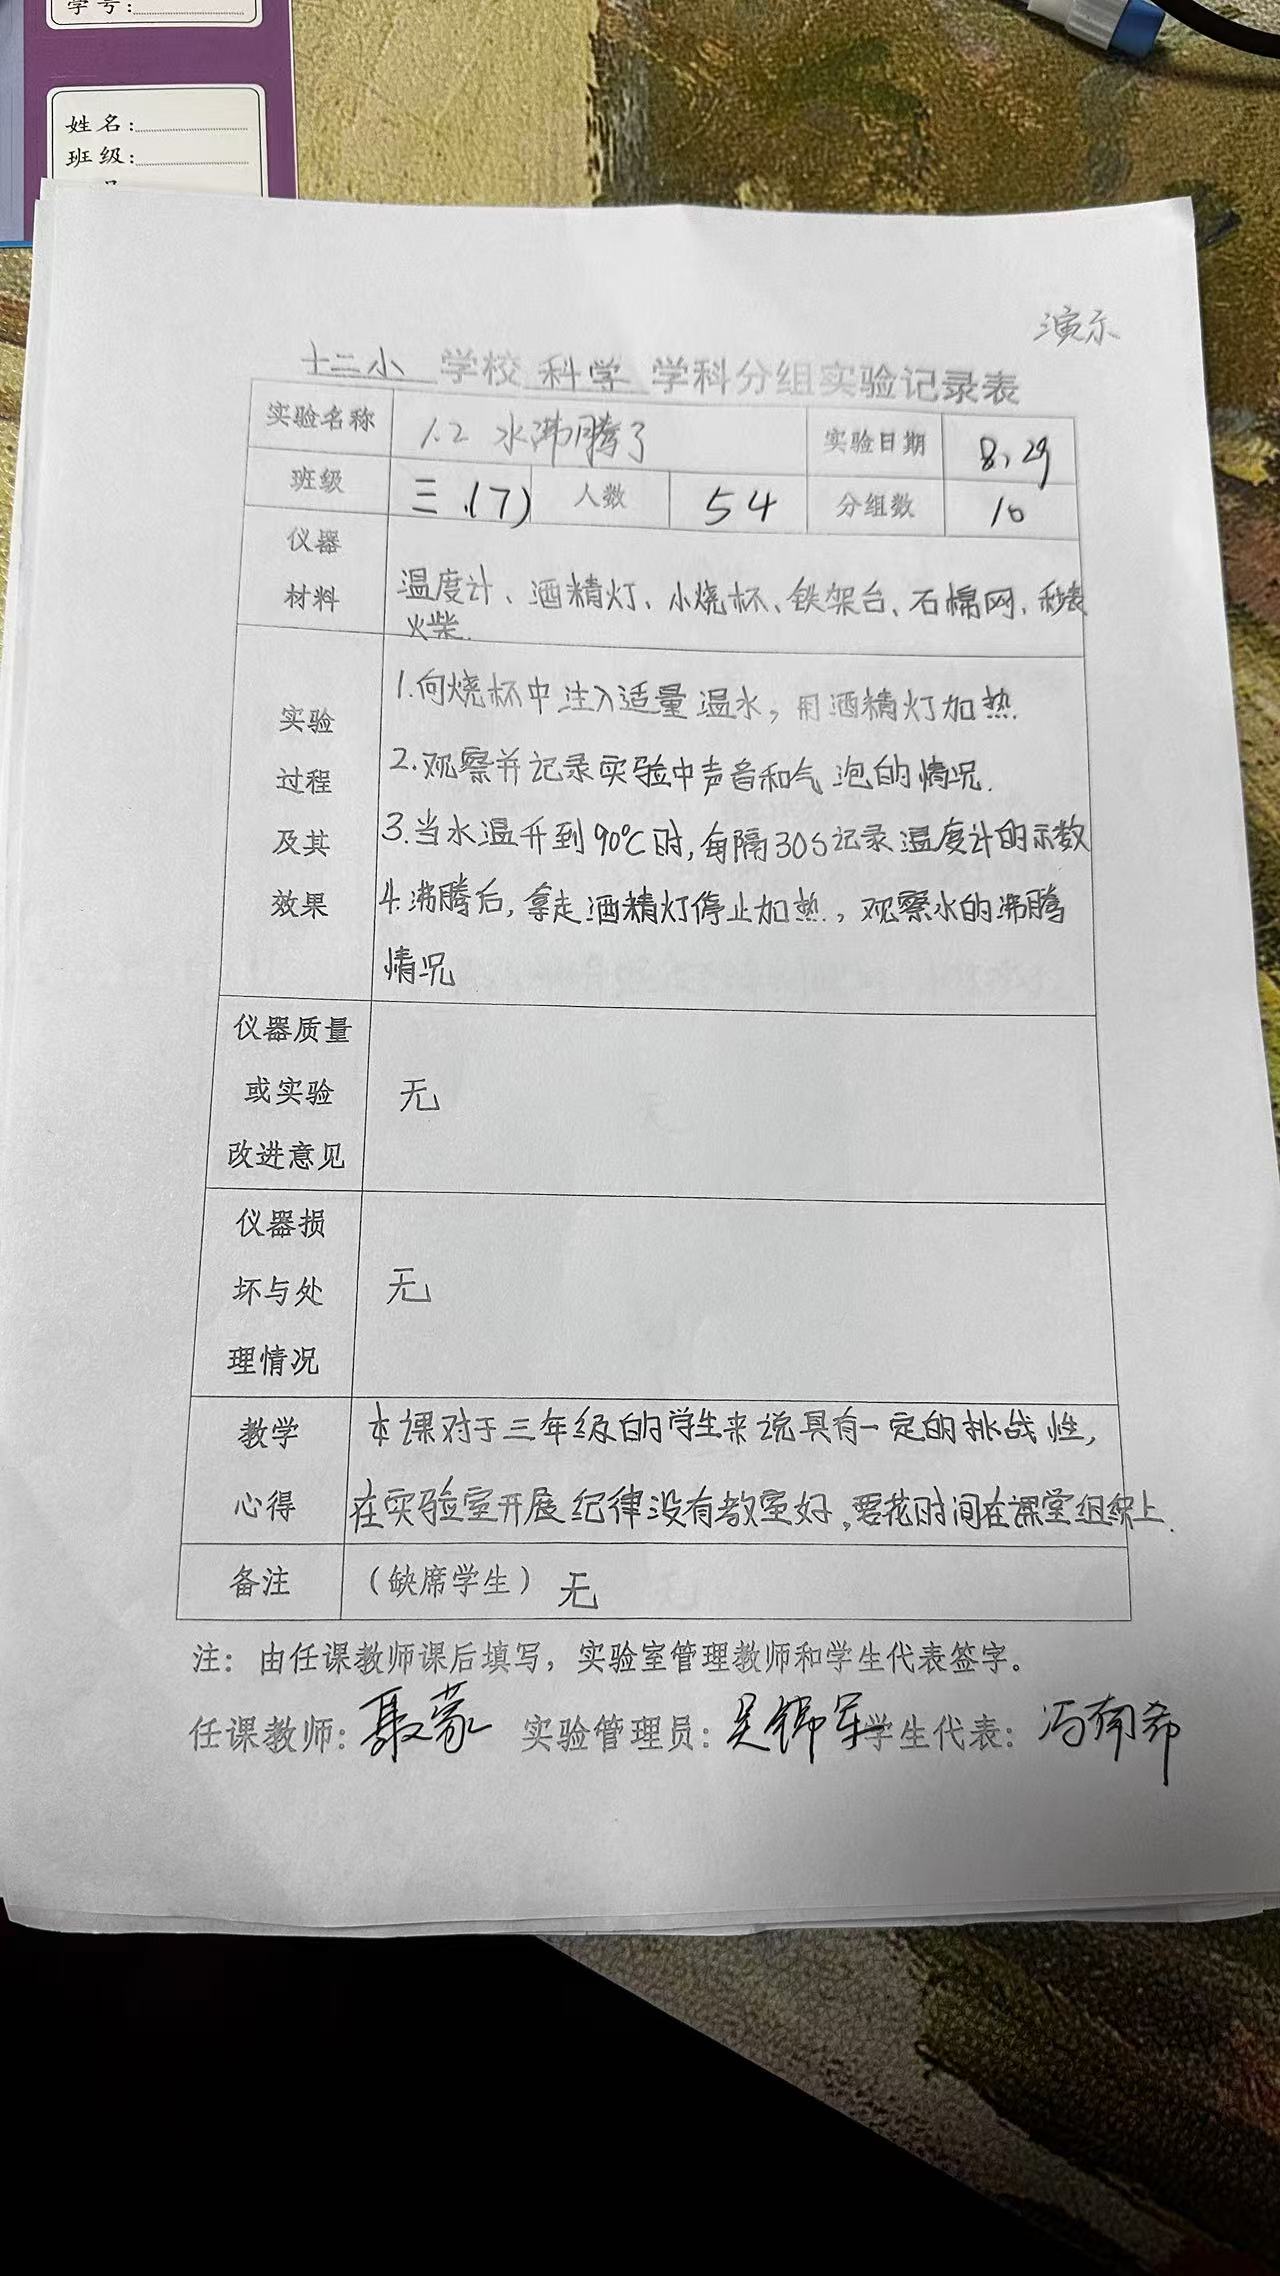 学号:
姓名:
班级:
演示
十二小 学校 科学 学科分组实验记录表
实验名称 1.2 水沸腾了 实验日期 8.29
班级 三.(7) 人数 54 分组数 10
仪器
材料 温度计、酒精灯、小烧杯、铁架台、石棉网、秒表
火柴.
实验
过程
及其
效果
1.向烧杯中注入适量温水，用酒精灯加热.
2.观察并记录实验中声音和气泡的情况.
3.当水温升到90℃时,每隔30S记录温度计的示数
4.沸腾后,拿走酒精灯停止加热.，观察水的沸腾
情况
仪器质量
或实验
改进意见
无
仪器损
坏与处
理情况
无
教学
心得
本课对于三年级的学生来说具有一定的挑战性,
在实验室开展纪律没有教室好,要花时间在课堂组织上.
备注 （缺席学生） 无
注：由任课教师课后填写，实验室管理教师和学生代表签字。
任课教师: 聂蒙 实验管理员: 吴锦军 学生代表: